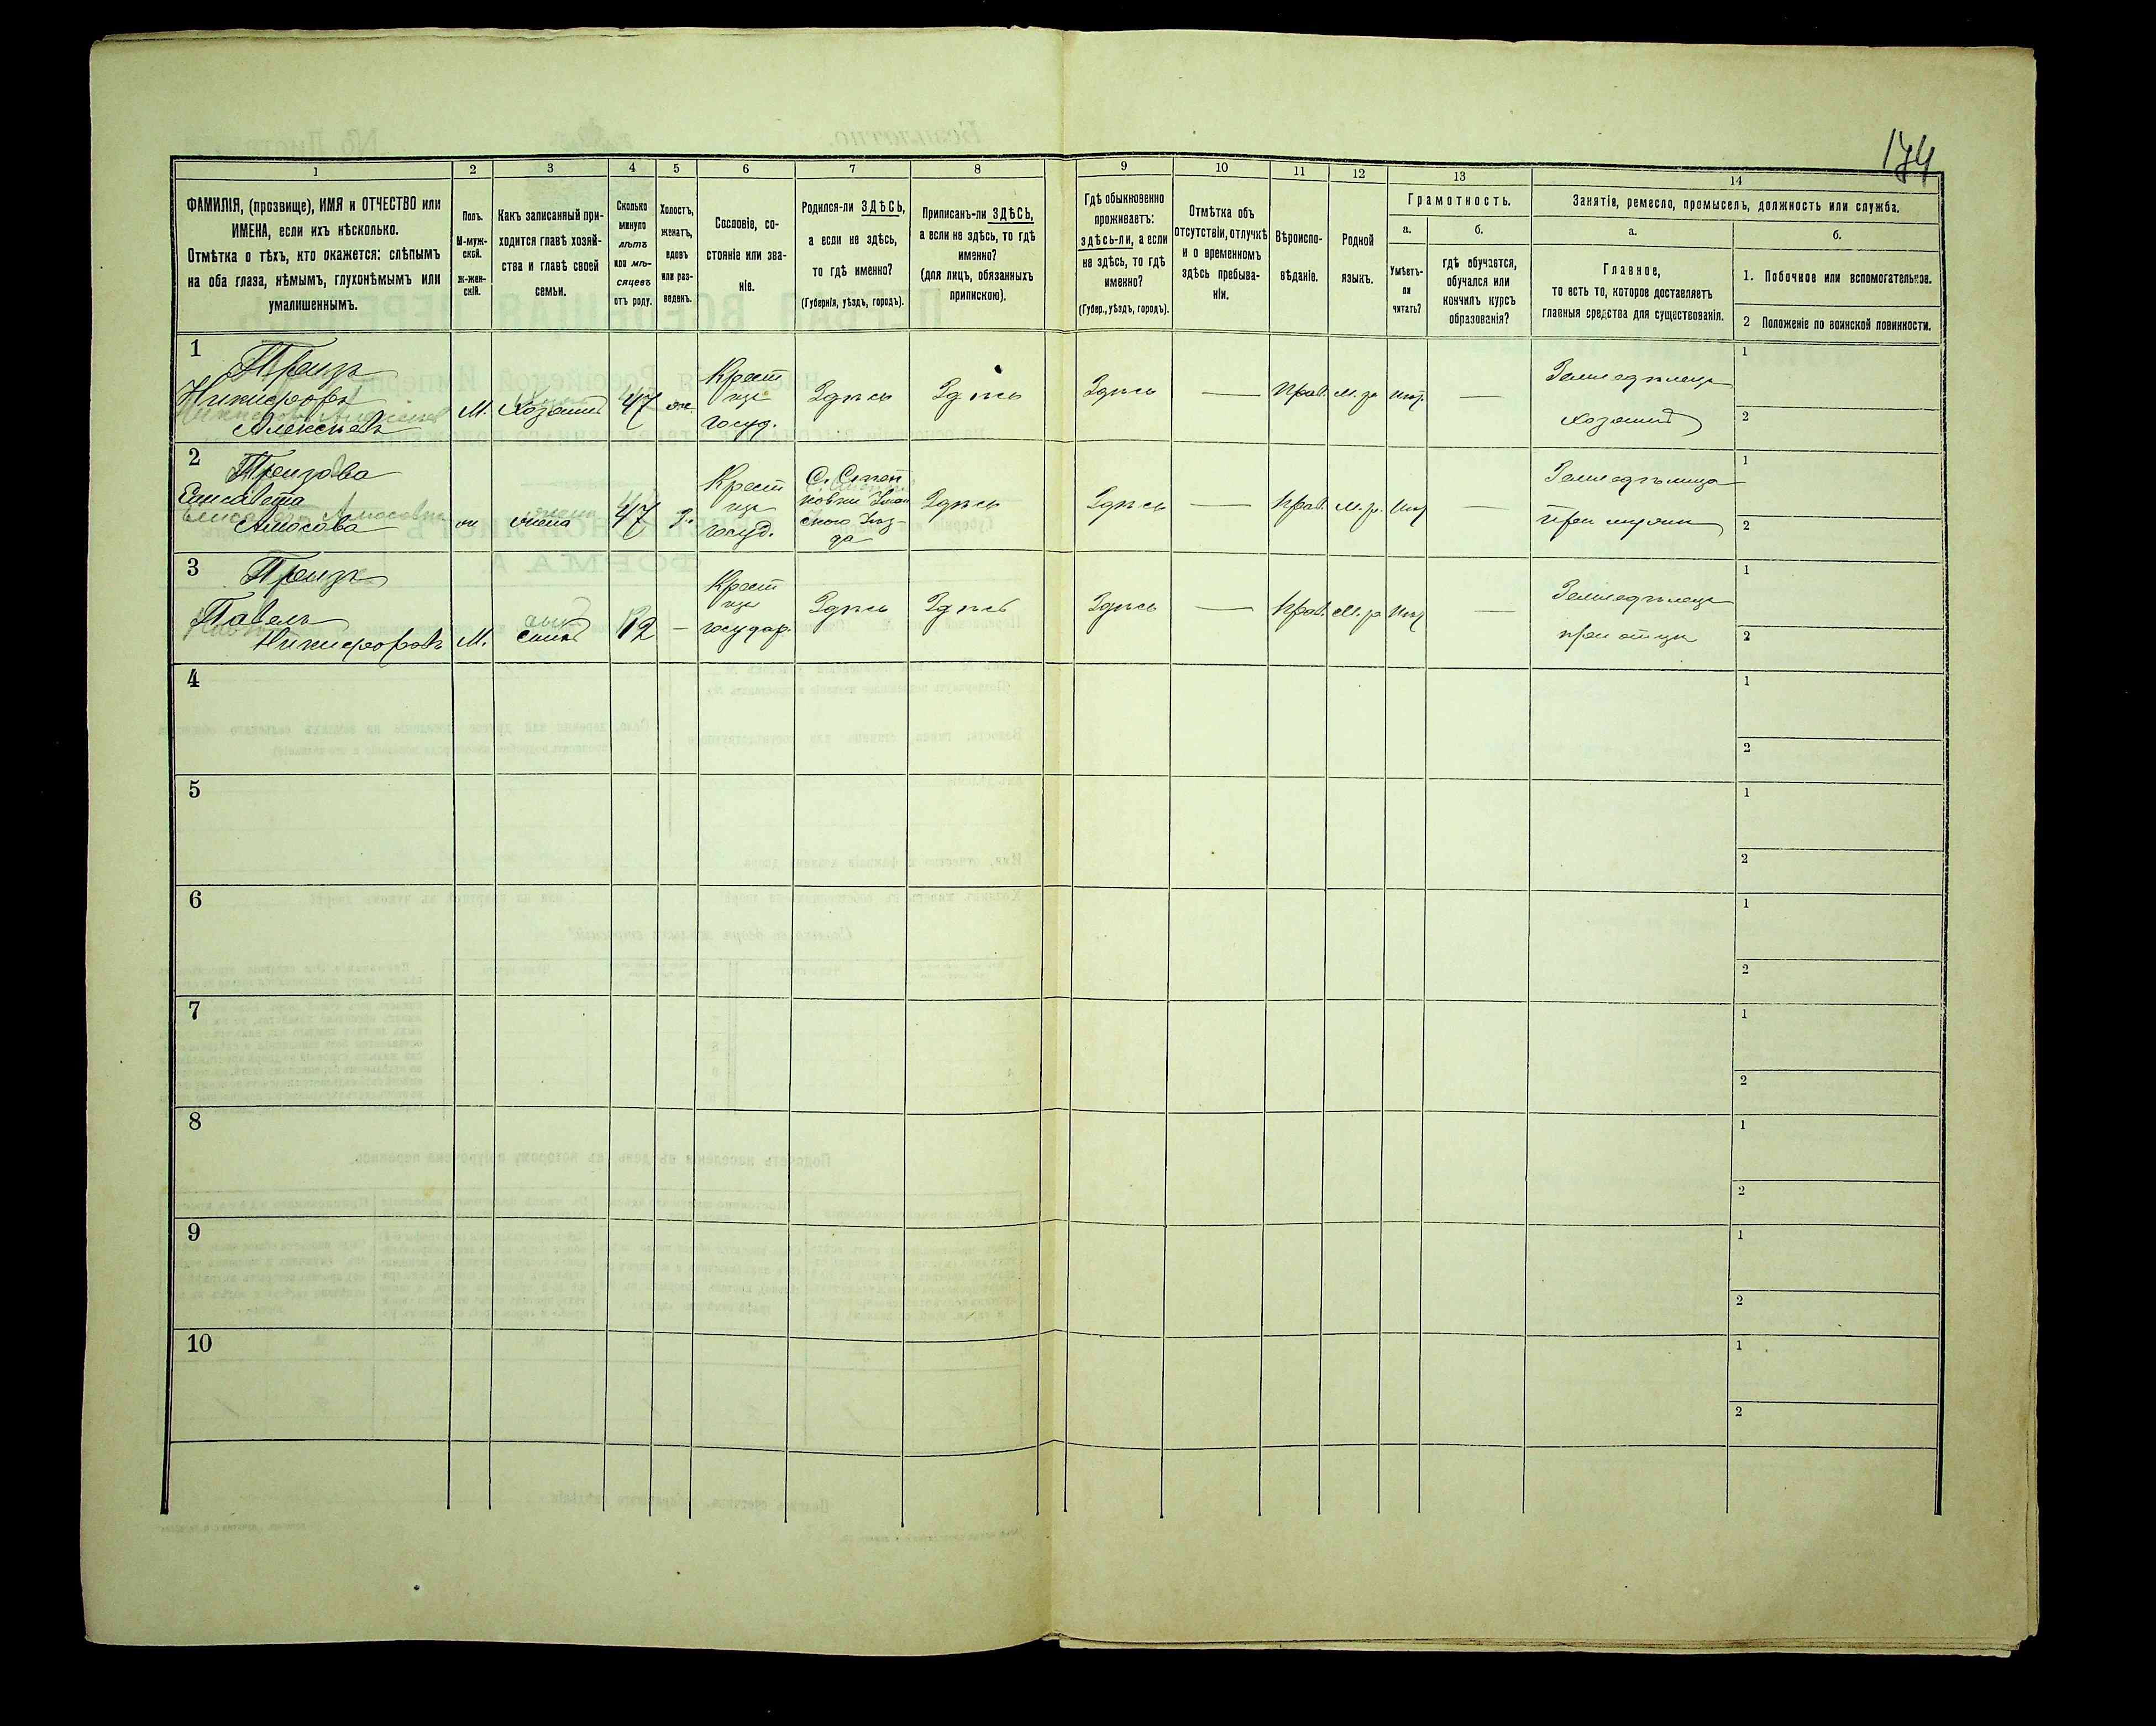 174
1
2
3
4
5
6
7
8
9
10
11
12
13
14
ФАМИЛІЯ, (прозвище), ИМЯ и ОТЧЕСТВО или
ИМЕНА, если ихъ нѣсколько.
Отмѣтка о тѣхъ, кто окажется: слѣпымъ
на оба глаза, нѣмымъ, глухонѣмымъ или
умалишеннымъ.
Полъ.
М-муж-
ской.
ж-жен-
скій.
Какъ записанный при-
ходится главѣ хозяй-
ства и главѣ своей
семьи.
Сколько
минуло
лѣтъ
или мѣ-
сяцевъ
отъ роду.
Холостъ,
женатъ,
вдовъ
или раз-
веденъ.
Сословіе, со-
стояніе или зва-
ніе.
Родился-ли ЗДѢСЬ,
а если не здѣсь,
то гдѣ именно?
(Губернія, уѣздъ, городъ).
Приписанъ-ли ЗДѢСЬ,
а если не здѣсь, то гдѣ
именно?
(для лицъ, обязанныхъ
припискою).
Гдѣ обыкновенно
проживаетъ:
здѣсь-ли, а если
не здѣсь, то гдѣ
именно?
(Губер., уѣздъ, городъ).
Отмѣтка объ
отсутствіи, отлучкѣ
и о временномъ
здѣсь пребыва-
ніи.
Вѣроиспо-
вѣданіе.
Родной
языкъ.
Грамотность.
а.
Умѣетъ-
ли
читать?
б.
гдѣ обучается,
обучался или
кончилъ курсъ
образованія?
Занятія, ремесло, промыселъ, должность или служба.
а.
Главное,
то есть то, которое доставляетъ
главныя средства для существованія.
б.
1. Побочное или вспомогательное.
2 Положеніе по воинской повинности.
1
Никифоръ
Алексѣевъ
М.
Хозяинъ
47
Крест
изъ
госуд.
Здѣсь
Здѣсь
Здѣсь
—
Прав.
М. р.
Нѣт.
—
Земледѣлецъ
хозяинъ
1
2
2
Елисавета
Амосова
ж
жена
47
З.
Крест
изъ
госуд.
Здѣсь
Здѣсь
—
Прав.
М. р.
Нѣт
—
Земледѣлица
при мужѣ
1
2
3
Павелъ
Никифоровъ
М.
сынъ
12
—
Крест
изъ
государ.
Здѣсь
Здѣсь
Здѣсь
—
Прав.
М. р.
Нѣт
—
Земледѣлецъ
при отцѣ
1
2
4
1
2
5
1
2
6
1
2
7
1
2
8
1
2
9
1
2
10
1
2